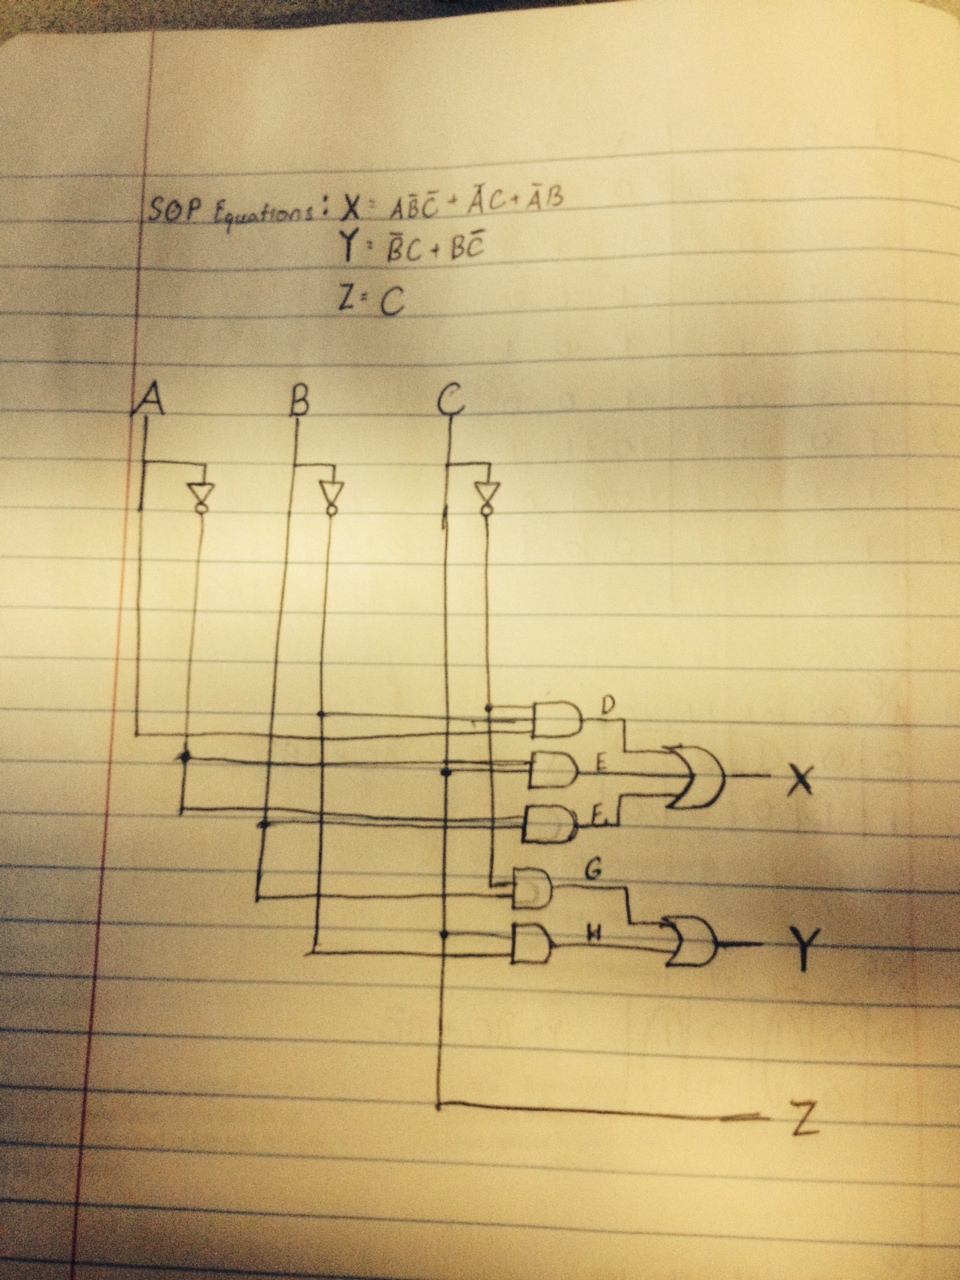 SOP Equations: X = AB̄C̄ + ĀC + ĀB
Y = B̄C + BC̄
Z = C
A B C
D
E
X
E
G
H
Y
Z